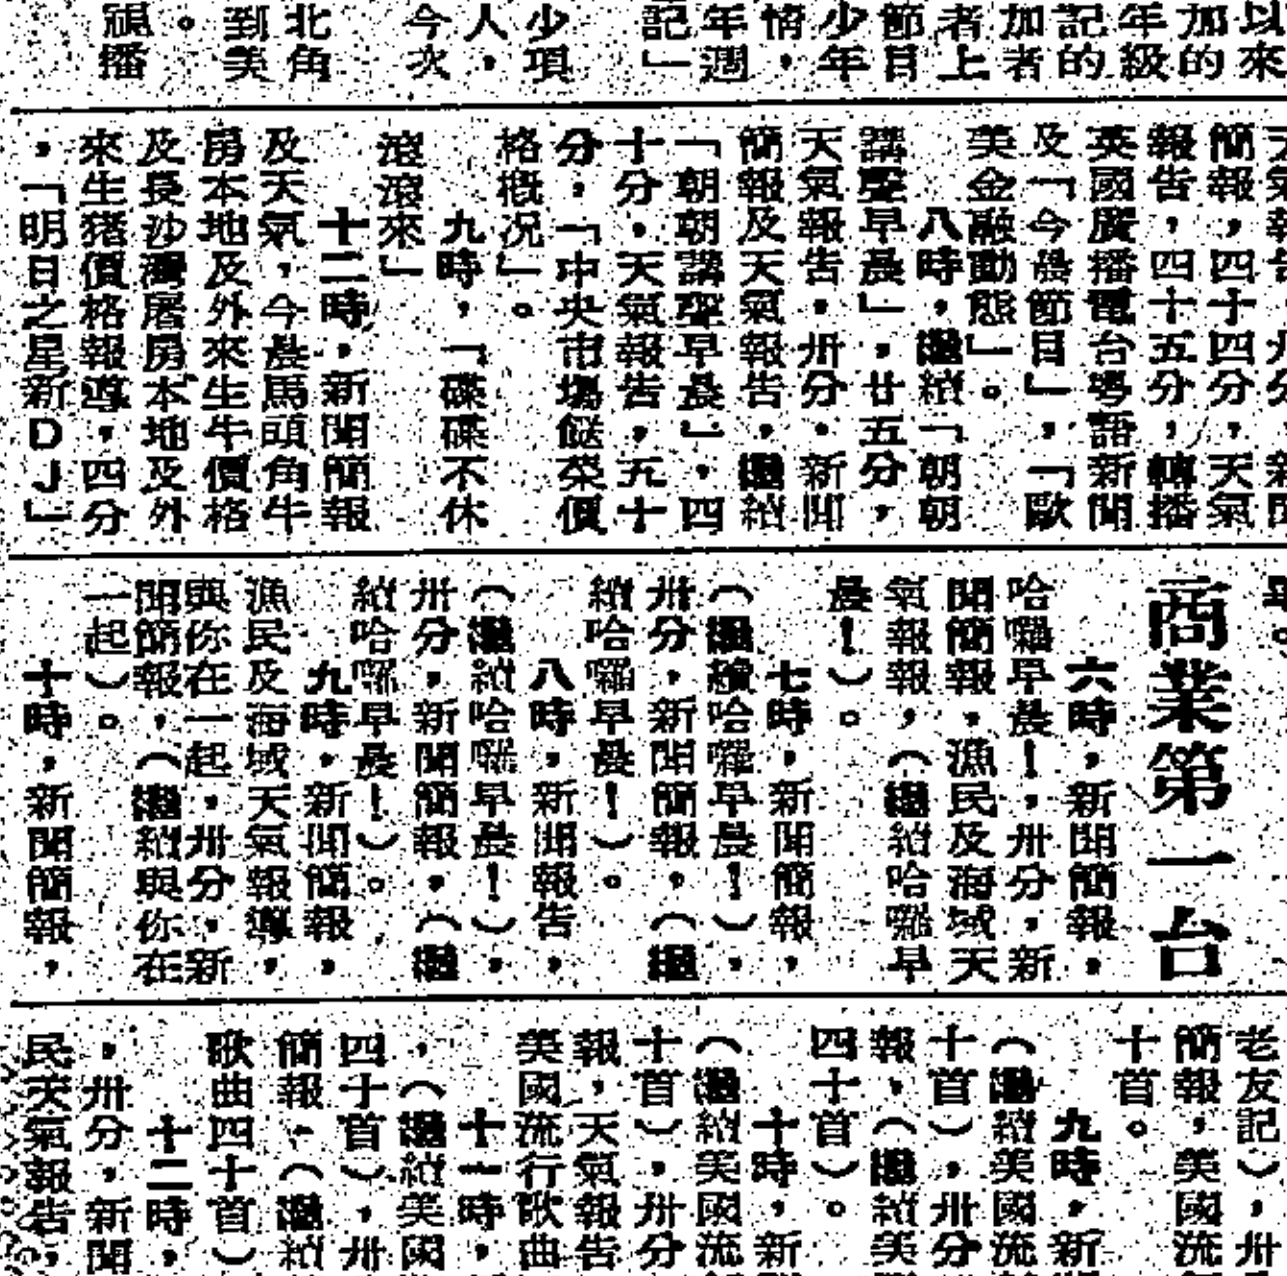 以來
加的
年級
記的
加者
者上
節目
少年
情，
年週
記」
少項
人，
今次
北角
到美
。
播
天氣報告，卅分，新聞
簡報，四十四分，天氣
報告，四十五分，轉播
英國廣播電台粵語新聞
及「今晨節目」，「歐
美金融動態」。
八時，繼續「朝朝
講聖早晨」，廿五分，
天氣報告，卅分，新聞
簡報及天氣報告，繼續
「朝朝講聖早晨」，四
十分，天氣報告，五十
分，「中央市場餸菜價
格概况」。
九時，「碟碟不休
滾滾來」
十二時，新聞簡報
及天氣，今晨馬頭角牛
房本地及外來生牛價格
及長沙灣屠房本地及外
來生猪價格報導，四分
，「明日之星新DJ」
商業第一台
六時，新聞簡報，
哈囉早晨！，卅分，新
聞簡報，漁民及海域天
氣報報，（繼續哈囉早
晨！）。
七時，新聞簡報，
（繼續哈囉早晨！），
卅分，新聞簡報，（繼
續哈囉早晨！）。
八時，新聞報告，
（繼續哈囉早晨！），
卅分，新聞簡報，（繼
續哈囉早晨！）。
九時，新聞簡報，
漁民及海域天氣報導，
與你在一起，卅分，新
聞簡報，（繼續與你在
一起）。
十時，新聞簡報，
老友記），卅
簡報，美國流
十首。
九時，新
（繼續美國流
十首），卅分
報，（繼續美
四十首）。
十時，新
（繼續美國流
十首），卅分
報，天氣報告
美國流行歌曲
十一時，
，（繼續美國
四十首），卅
簡報，（繼續
歌曲四十首）
十二時，
，卅分，新聞
民天氣報告，